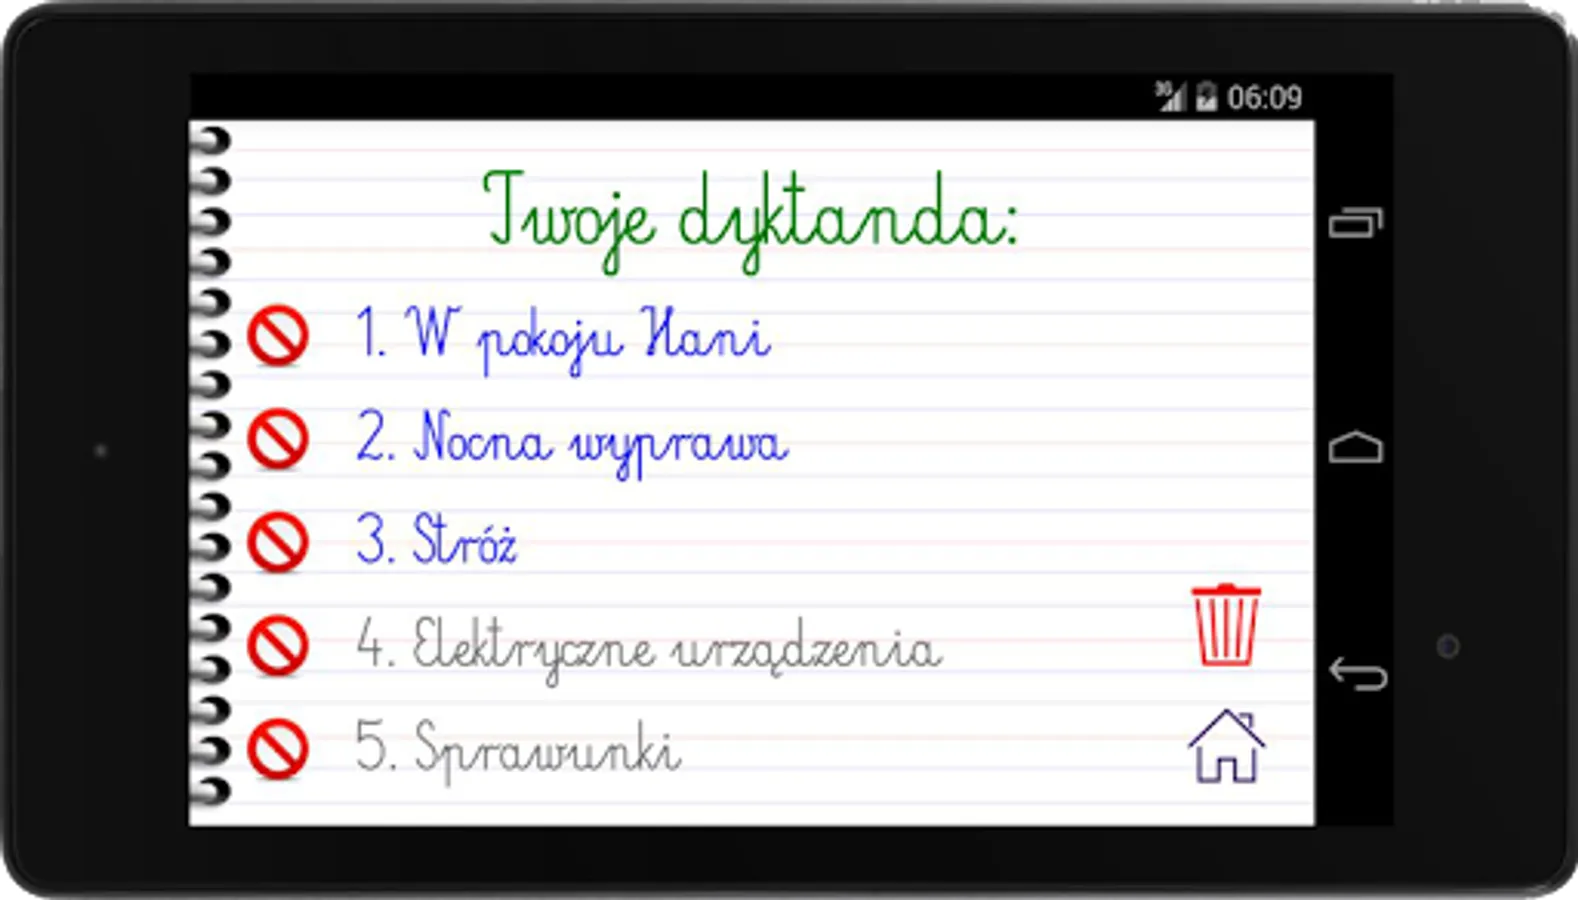 3G 06:09
Twoje dyktanda:
1. W pokoju Hani
2. Nocna wyprawa
3. Stróż
4. Elektryczne urządzenia
5. Sprawunki